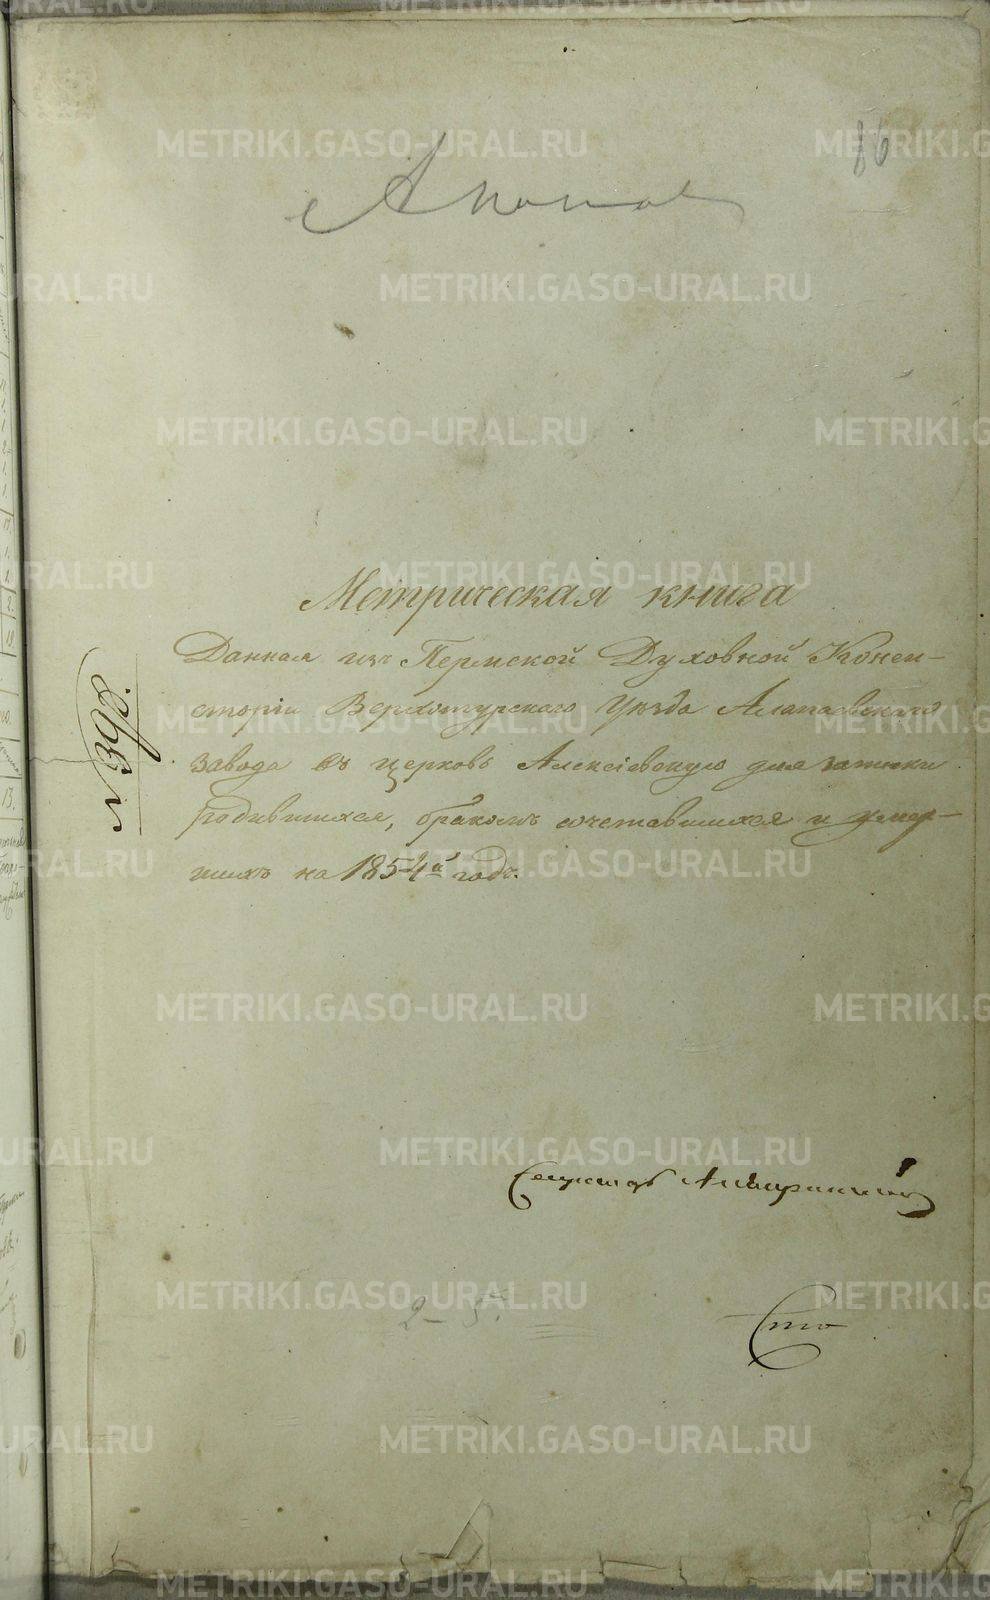 86
Метрическая книга
Данная изъ Пермской Духовной Конси-
сторіи Верхотурскаго Уѣзда Алапаевскаго
завода въ церковь Алексіевскую для записки
родившихся, бракомъ сочетавшихся и умер-
шихъ на 1854й годъ.
Секретарь
2-
METRIKI.GASO-URAL.RU